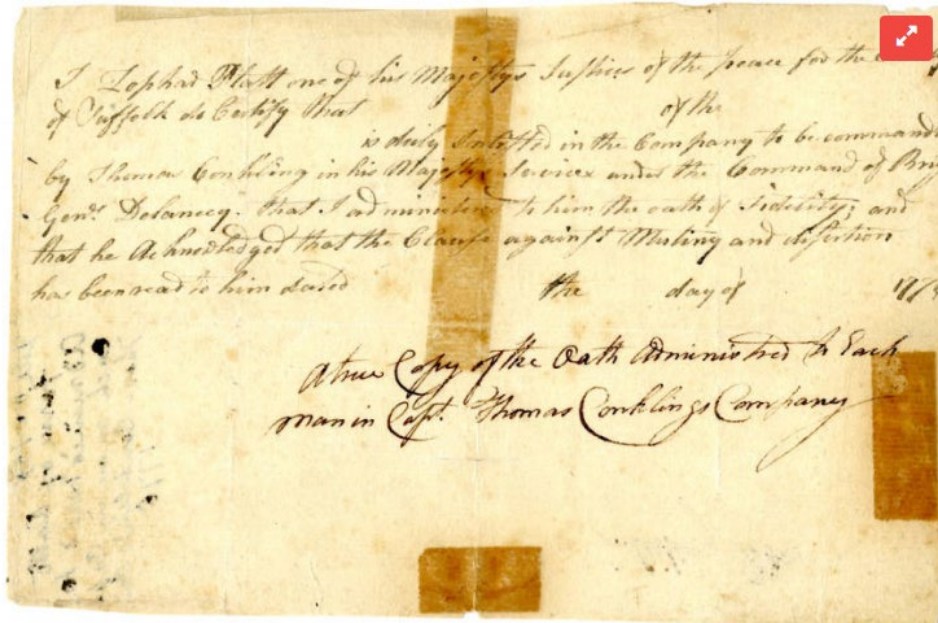 I Zophar Platt one of his Majestys Justices of the peace for the
of Suffolk do Certify that of the
is duly Inlisted in the Company to be command
by Thomas Conkling in his Majestys Service under the Command of Brig
Genl. Delancey. that I administered to him the oath of Fidelity; and
that he Acknowledged that the Clause against Mutiny and disertion
has been read to him dated the day of 177
A true Copy of the Oath Administred to Each
man in Capt. Thomas Conklings Company